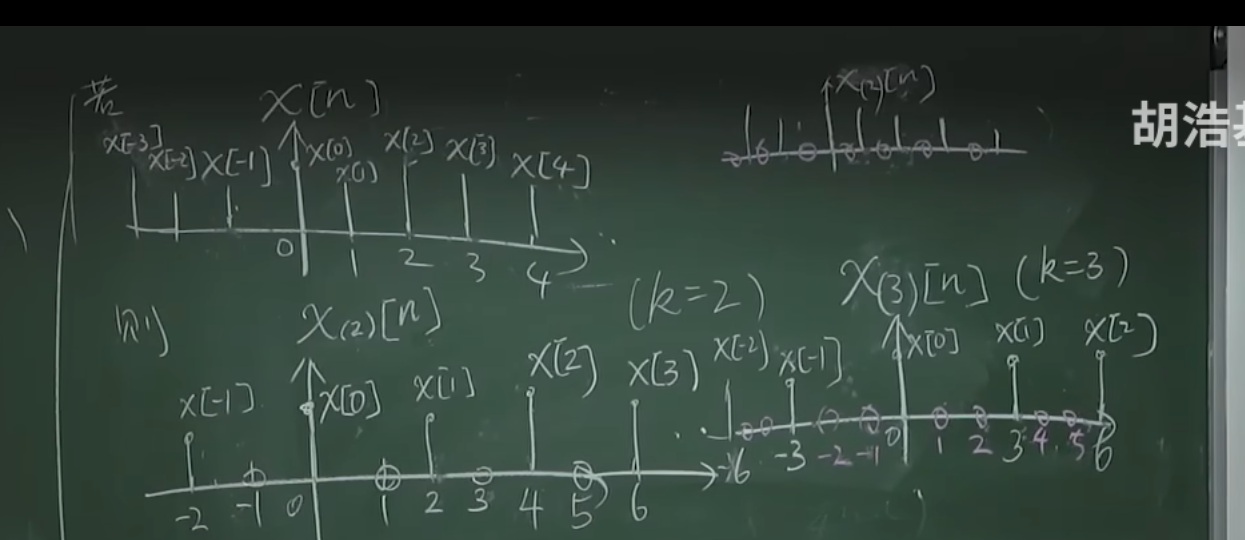 若
x[n]
x[-3] x[-2] x[-1] x[0] x[1] x[2] x[3] x[4]
0 1 2 3 4
x(2)[n]
胡浩
则 x(2)[n] (k=2)
x[-1] x[0] x[1] x[2] x[3]
-2 -1 0 1 2 3 4 5 6
x(3)[n] (k=3)
x[-2] x[-1] x[0] x[1] x[2]
-6 -3 -2 -1 0 1 2 3 4 5 6